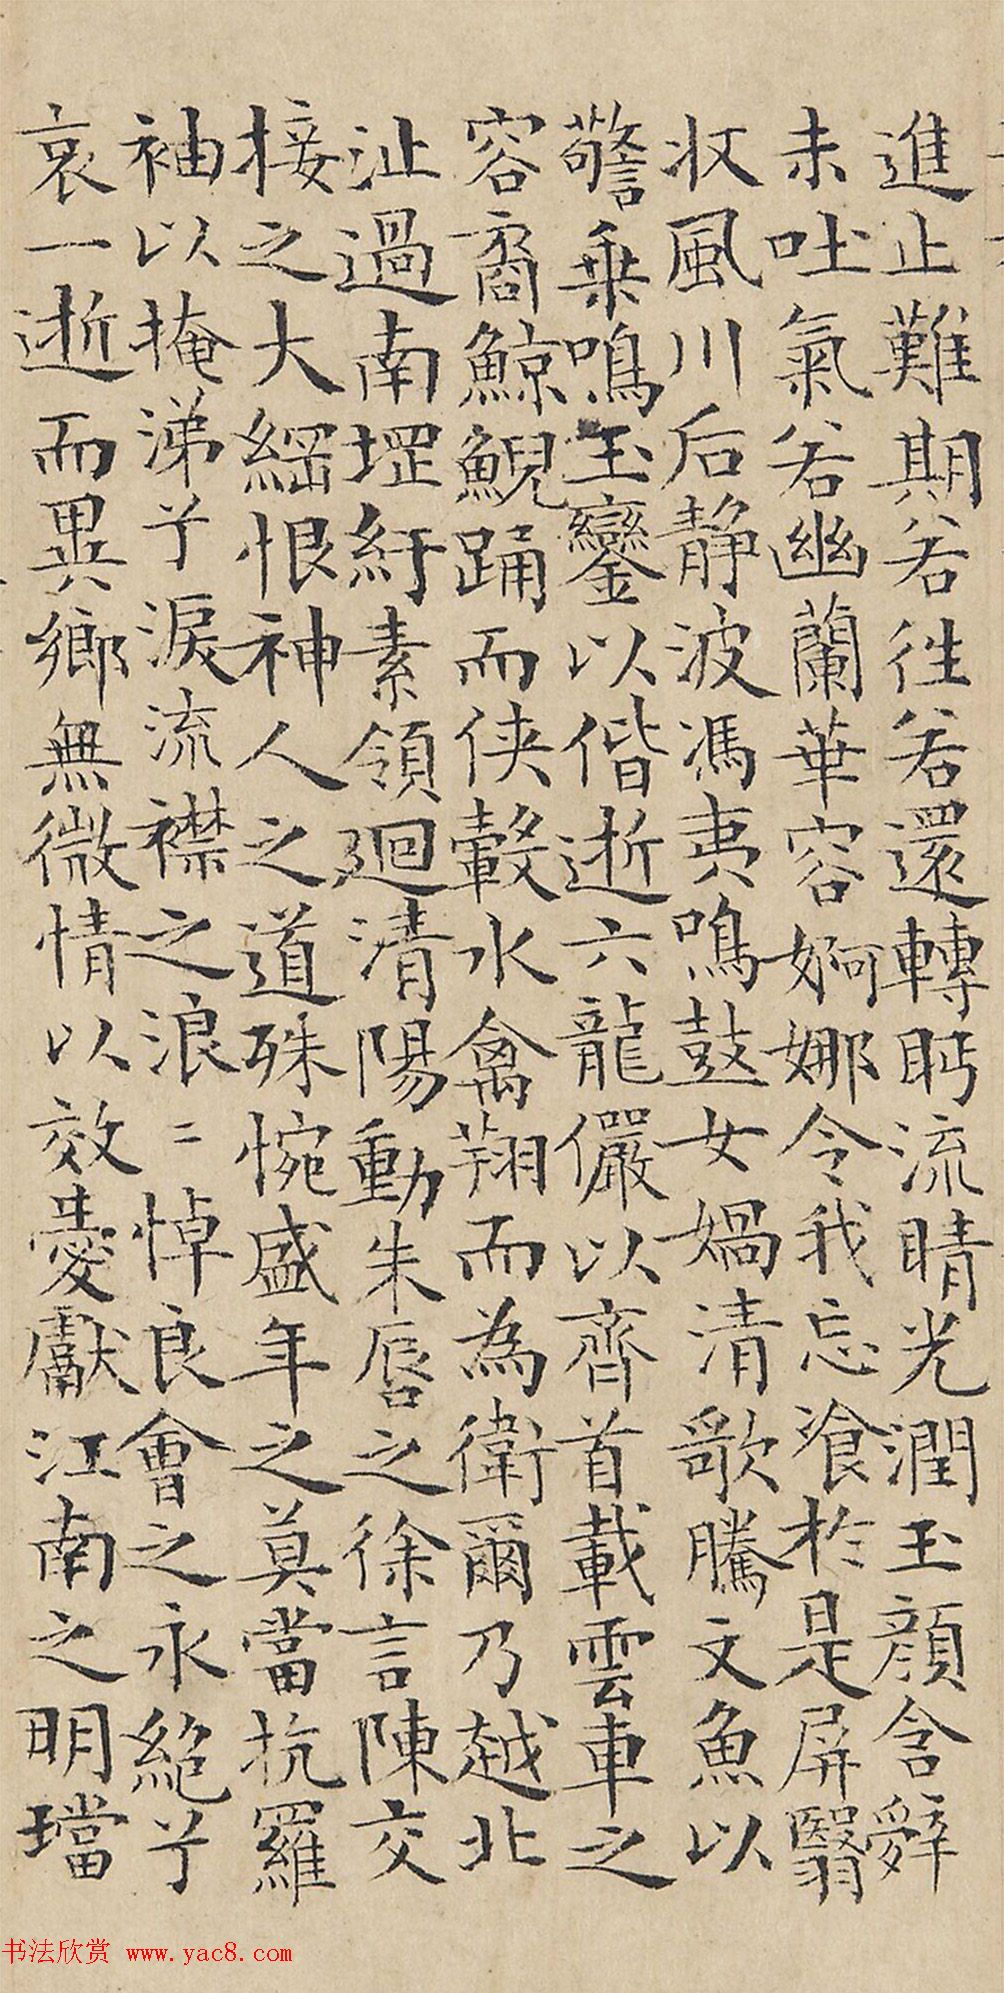 進止難期若往若還轉眄流睛光潤玉顏含辭
未吐氣若幽蘭華容婀娜令我忘湌於是屏翳
收風川后靜波馮夷鳴鼓女媧清歌騰文魚以
警乘鳴玉鑾以偕逝六龍儼以齊首載雲車之
容裔鯨鯢踊而俠轂水禽翔而為衛爾乃越北
沚過南堽紆素領迴清陽動朱唇之徐言陳交
接之大綱恨神人之道殊惋盛年之莫當抗羅
袖以掩涕兮淚流襟之浪〻悼良會之永絕兮
哀一逝而異鄉無微情以效愛獻江南之明璫
书法欣赏 www.yac8.com